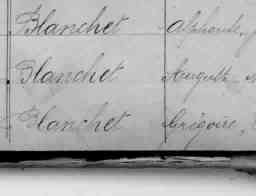 Blanchet Alphonse,
Blanchet Auguste
Blanchet Grégoire,